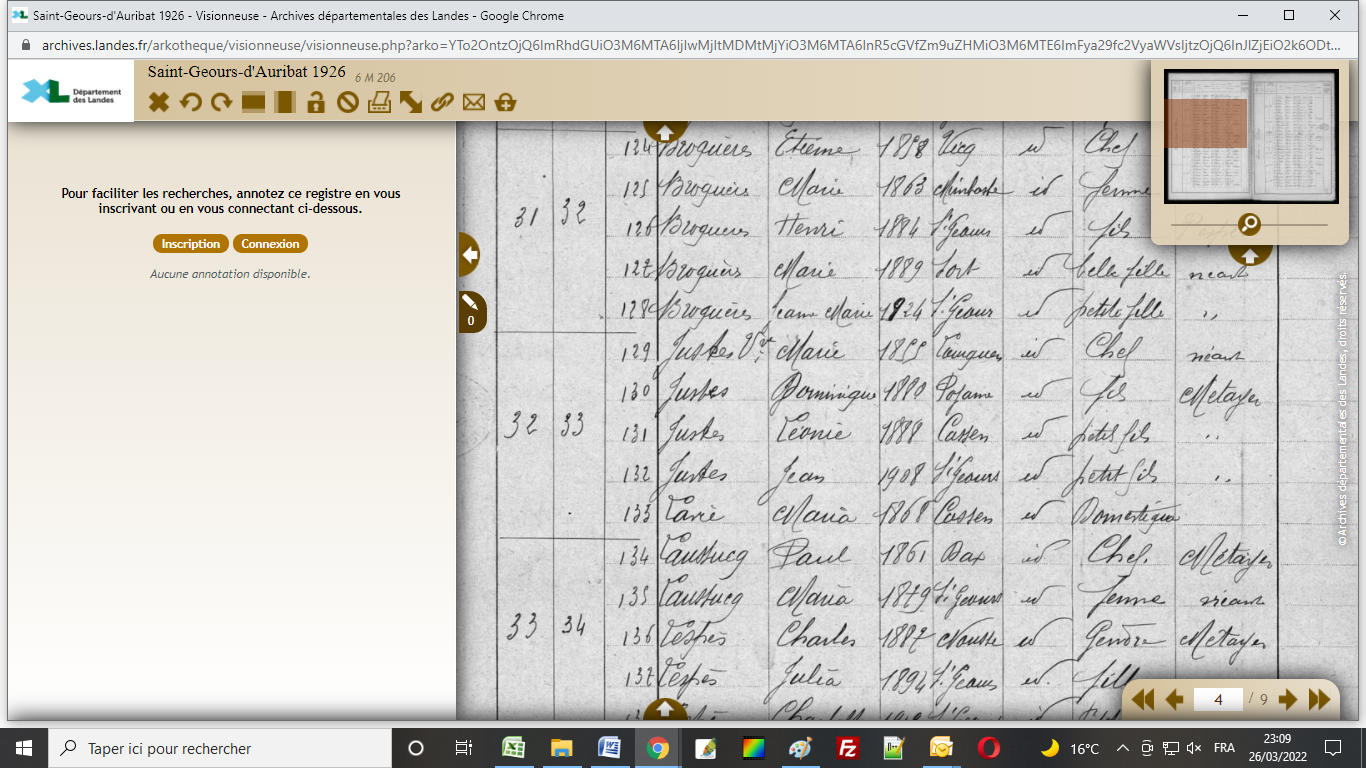 Saint-Geours-d'Auribat 1926 - Visionneuse - Archives départementales des Landes - Google Chrome
archives.landes.fr/arkotheque/visionneuse/visionneuse.php?arko=
XL Département des Landes
Saint-Geours-d'Auribat 1926 6 M 206
Pour faciliter les recherches, annotez ce registre en vous
inscrivant ou en vous connectant ci-dessous.
Inscription Connexion
Aucune annotation disponible.
0
124 Broquères Etienne 1858 Vicq id Chef
125 Broquères Marie 1863 id femme
31 32
126 Broquères Henri 1884 St Geours id fils
127 Broquères Marie 1889 Lort id belle fille néant
128 Broquères Jeanne Marie 1924 St Geours id petite fille ,,
129 Justes Vve Marie 1855 id Chef néant
130 Justes Dominique 1880 id fils Métayer
32 33
131 Justes Léonie 1888 Cassen id petit fils ,,
132 Justes Jean 1908 St Geours id petit fils ,,
133 Maria 1868 Cassen id Domestique
134 Paul 1861 Dax id Chef. Métayer
135 Maria 1879 St Geours id femme néant
33 34
136 Lespès Charles 1887 Nousse id Gendre Métayer
137 Lespès Julia 1894 St Geours id. fille
©Archives départementales des Landes, droits réservés.
4 / 9
Taper ici pour rechercher
16°C FRA 23:09
26/03/2022